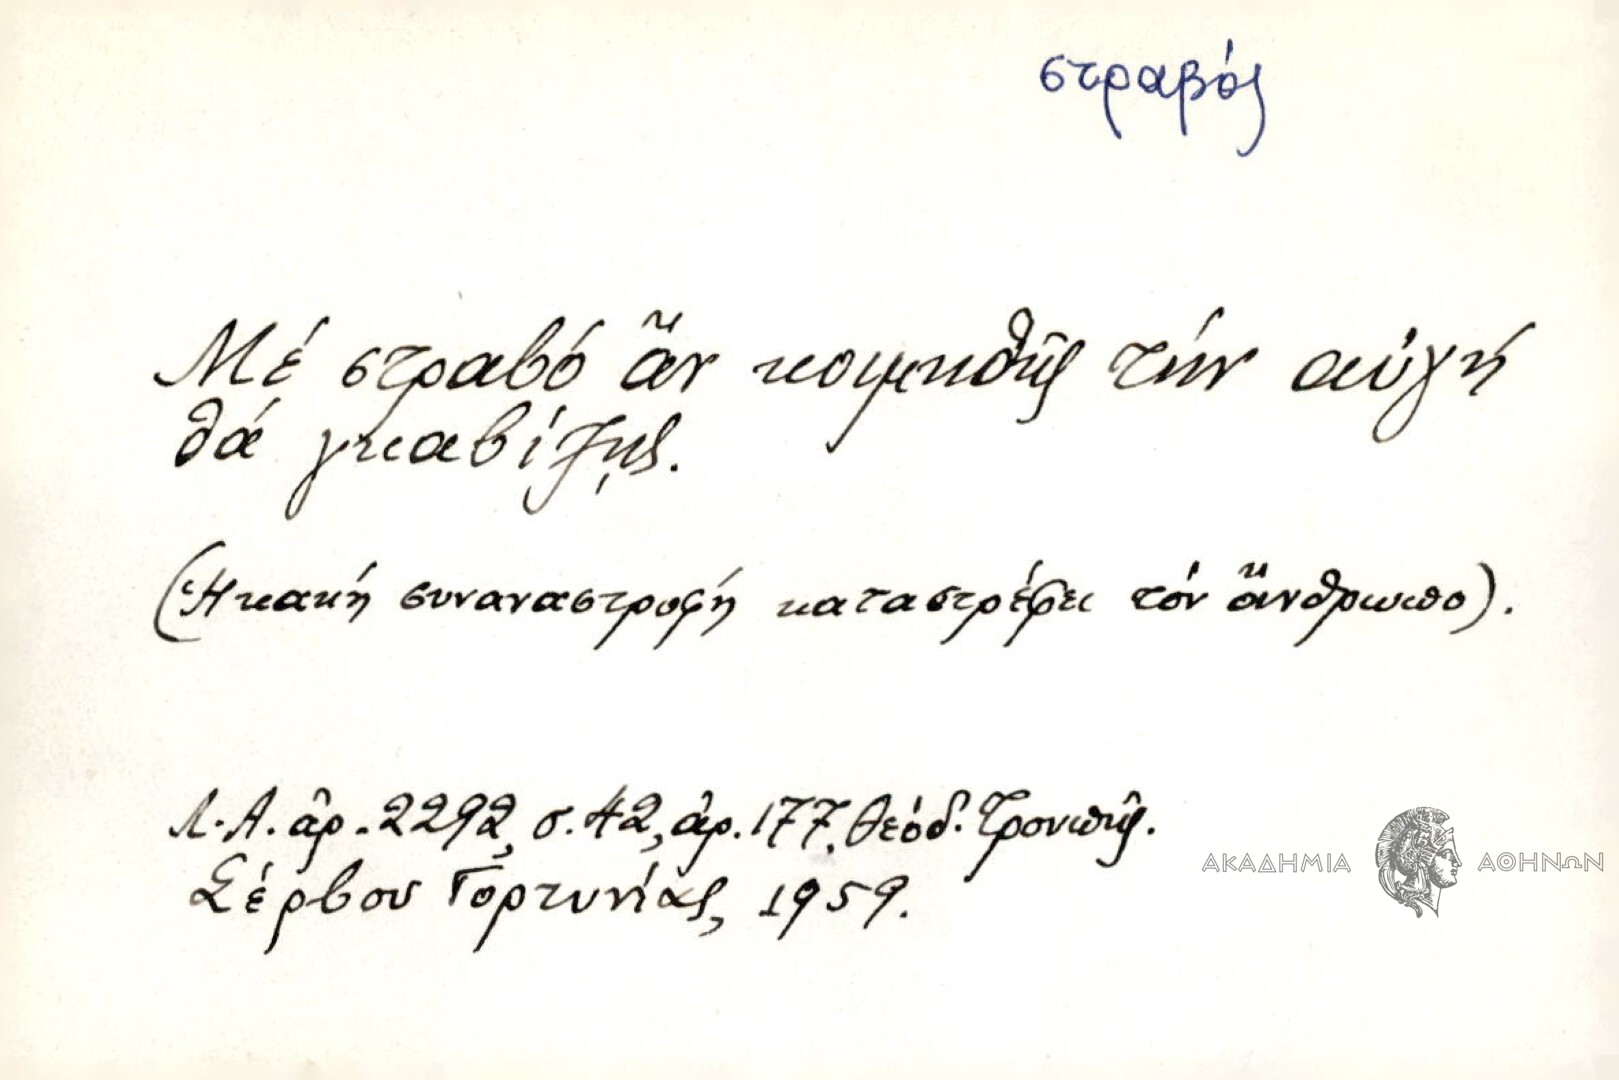 στραβός
Μέ στραβό ἄν κοιμηθῆς τήν αὐγή
θά γκαβίζῃς.
(Ἡ κακή συναναστροφή καταστρέφει τόν ἄνθρωπο).
Λ.Α. ἀρ. 2292, σ. 42, ἀρ. 177, Θεόδ. Τρουπῆς.
Σέρβου Γορτυνίας, 1959.
ΑΚΑΔΗΜΙΑ ΑΘΗΝΩΝ